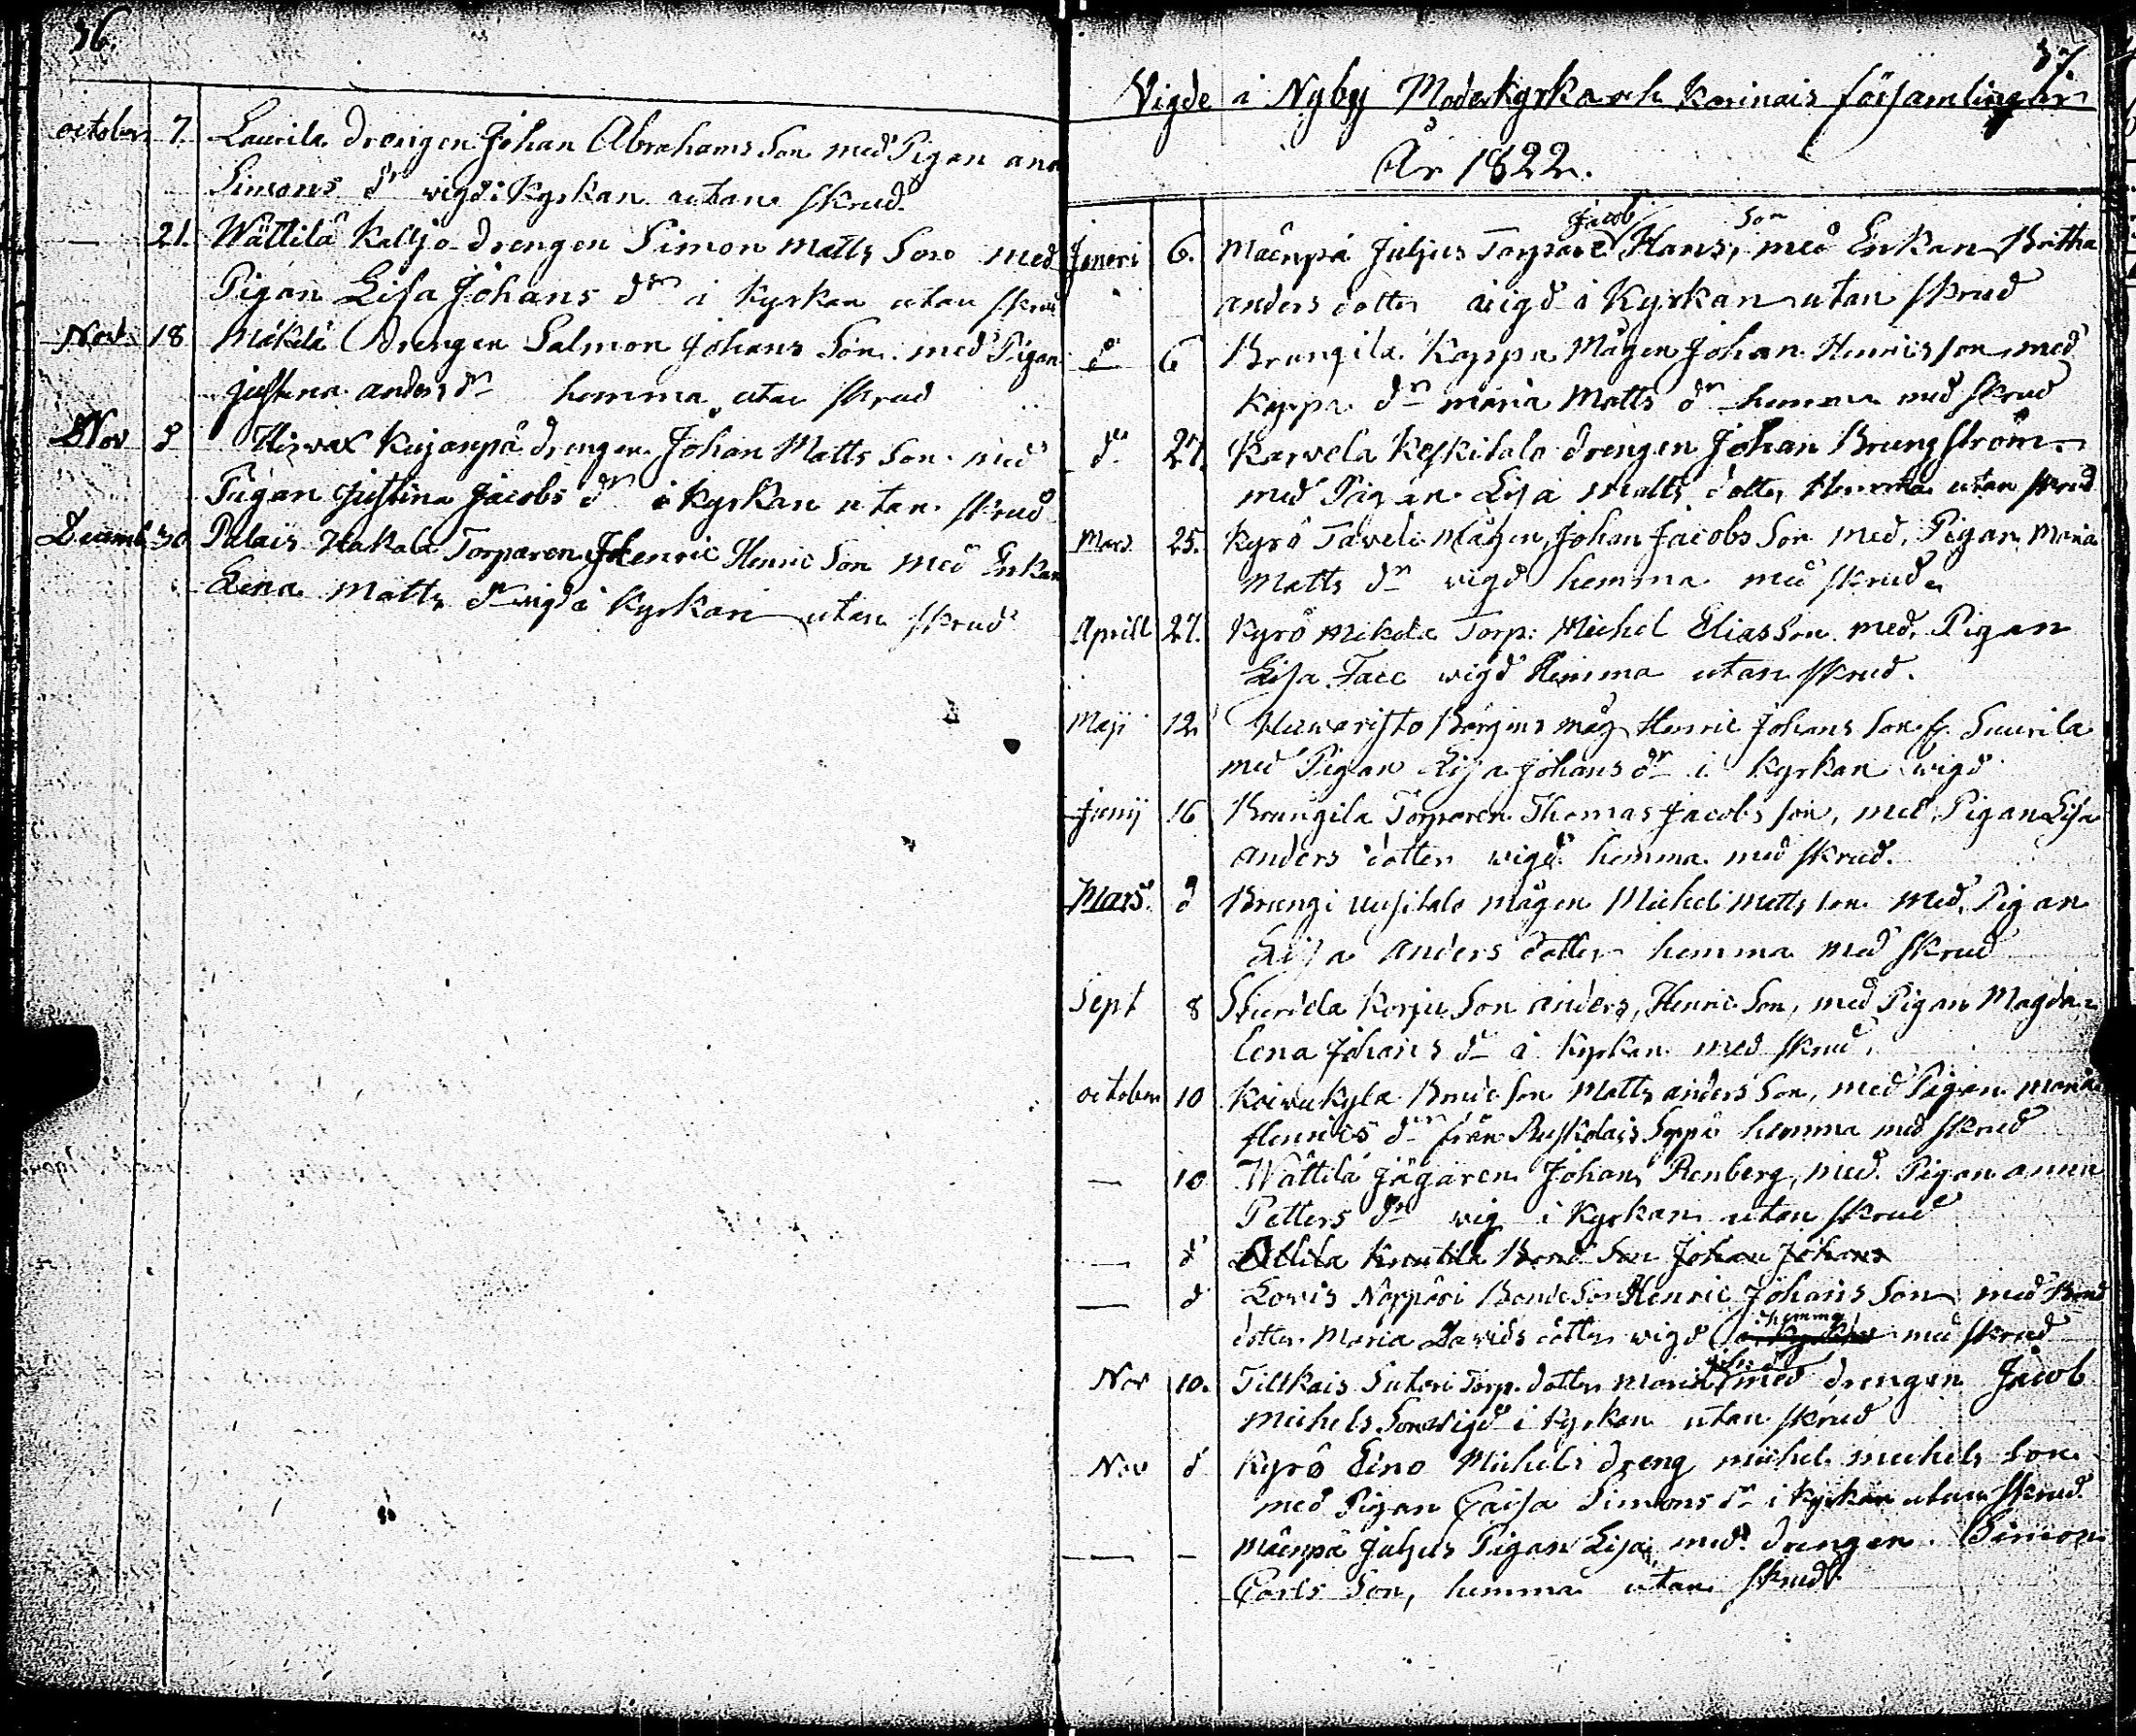 36.
october 7. Laurila drengen Johan Abrahams Son med Pigan ana
Simons dr wigd i Kyrkan utan skrud.
— 21. Wättilä Kalljo drengen Simon Matts Son med
Pigan Lisa Johans dr i Kyrkan utan skrud
Nov 18 Mäkilä drengen Salmon Johans Son med Pigan
justina anders dr hemma utan skrud
Nov d Kujanpä drengen Johan Matts Son med
Pigan Justina Jacobs dr i Kyrkan utan skrud
Decemb 30 Palais Hakala Torparen Henric Henric Son med Enkan
Lena Matts dr wigd i Kyrkan utan skrud
37.
Vigde i Nyby Moderkyrka och Karinais församlingar
År 1822.
Jacob Son
Jeneri 6. Mäenpä Juljus Torpare Hans, med Enkan Britha
anders dotter wigd i Kyrkan utan skrud
do 6 Brungila Kappa Mågen Johan Henricsson med
Kappa dr maria Matts dr hemma med skrud
do 27. Karvela Keskitalo drengen Johan Brungström
med Pigan Lisa Matts dotter Hemma utan skrud
Mars 25. Kyrö Taveli Mågen Johan Jacobs Son med, Pigan Maria
Matts dr wigd hemma med skrud
Aprill 27. Kyrö Mikola Torp: Michel Eliasson med, Pigan
Lisa wigd Hemma utan skrud.
Maji 12 Börjins måg Henric Johans Son fr. Suurila
med Pigan Lisa Johans dr i Kyrkan wigd
Junij 16 Brungila Torparen Thomas Jacobs son, med, Pigan Lisa
anders dotter wigd hemma med skrud.
Mars d Brungi uusitalo mågen Michel Matts son med, Pigan
Lisa anders dotter hemma med skrud
Sept 8 Korju Son anders, Henric Son, med Pigan Magda-
lena Johans dr i Kyrkan med skrud.
october 10 Koivukyla Bonde Son Matts anders Son, med Pigan maria
Henrics dr från Ruskolais Seppä hemma med skrud
— 10 Wättilä Jägaren Johan Renberg, med Pigan anna
Petters dr wig i Kyrkan utan skrud
— d Ollila Knutila Bond Son Johan Johans
— d Lowis Näppäri Bonde Son Henric Johans Son med Bond
hemma
dotter Maria Davids dotter wigd i Kyrkan med skrud
Nov 10. Tillkais Suteri Torp. dotter maria med drengen Jacob
Michels Son wigd i Kyrkan utan skrud
Nov d Kyrö Eino Michels dreng michel michels son
med Pigan Caisa Simons dr i Kyrkan utan skrud.
— - Mäenpä Juljus Pigan Lisa med drengen Simon
Carls Son, hemma utan skrud.